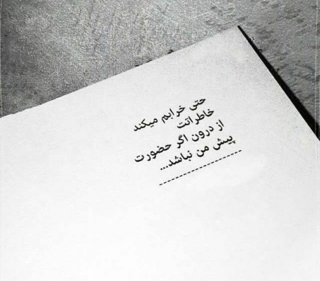 حتی خرابم میکند
خاطراتت
از درون اگر حضورت
پیش من نباشد...